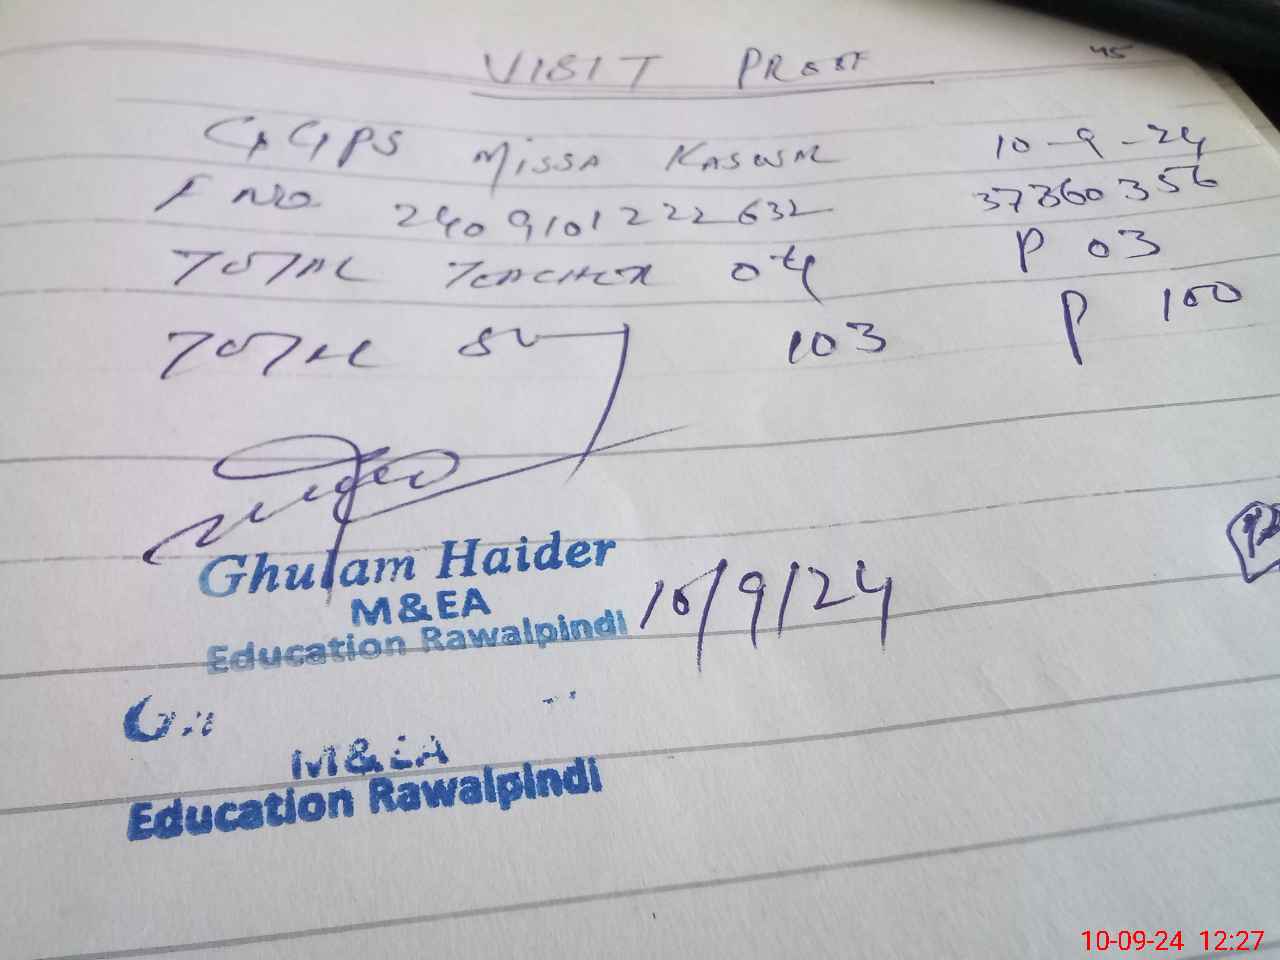 45
VISIT PROOF
GGPS MISSA KASWAL 10-9-24
F NO 2409101222632 37360356
TOTAL TEACHER 04 P 03
TOTAL 103 P 100
Ghulam Haider
M&EA
Education Rawalpindi 10/9/24
M&EA
Education Rawalpindi
10-09-24 12:27